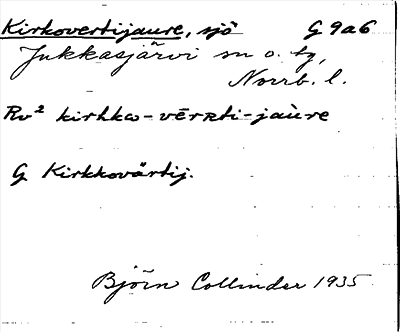 Kirkovertijaure, sjö G 9a6
Jukkasjärvi sn o. tg,
Norrb. l.
Rv² kirhkɷ-vērʀti-jaùre
G Kirkkovärtij.
Björn Collinder 1935